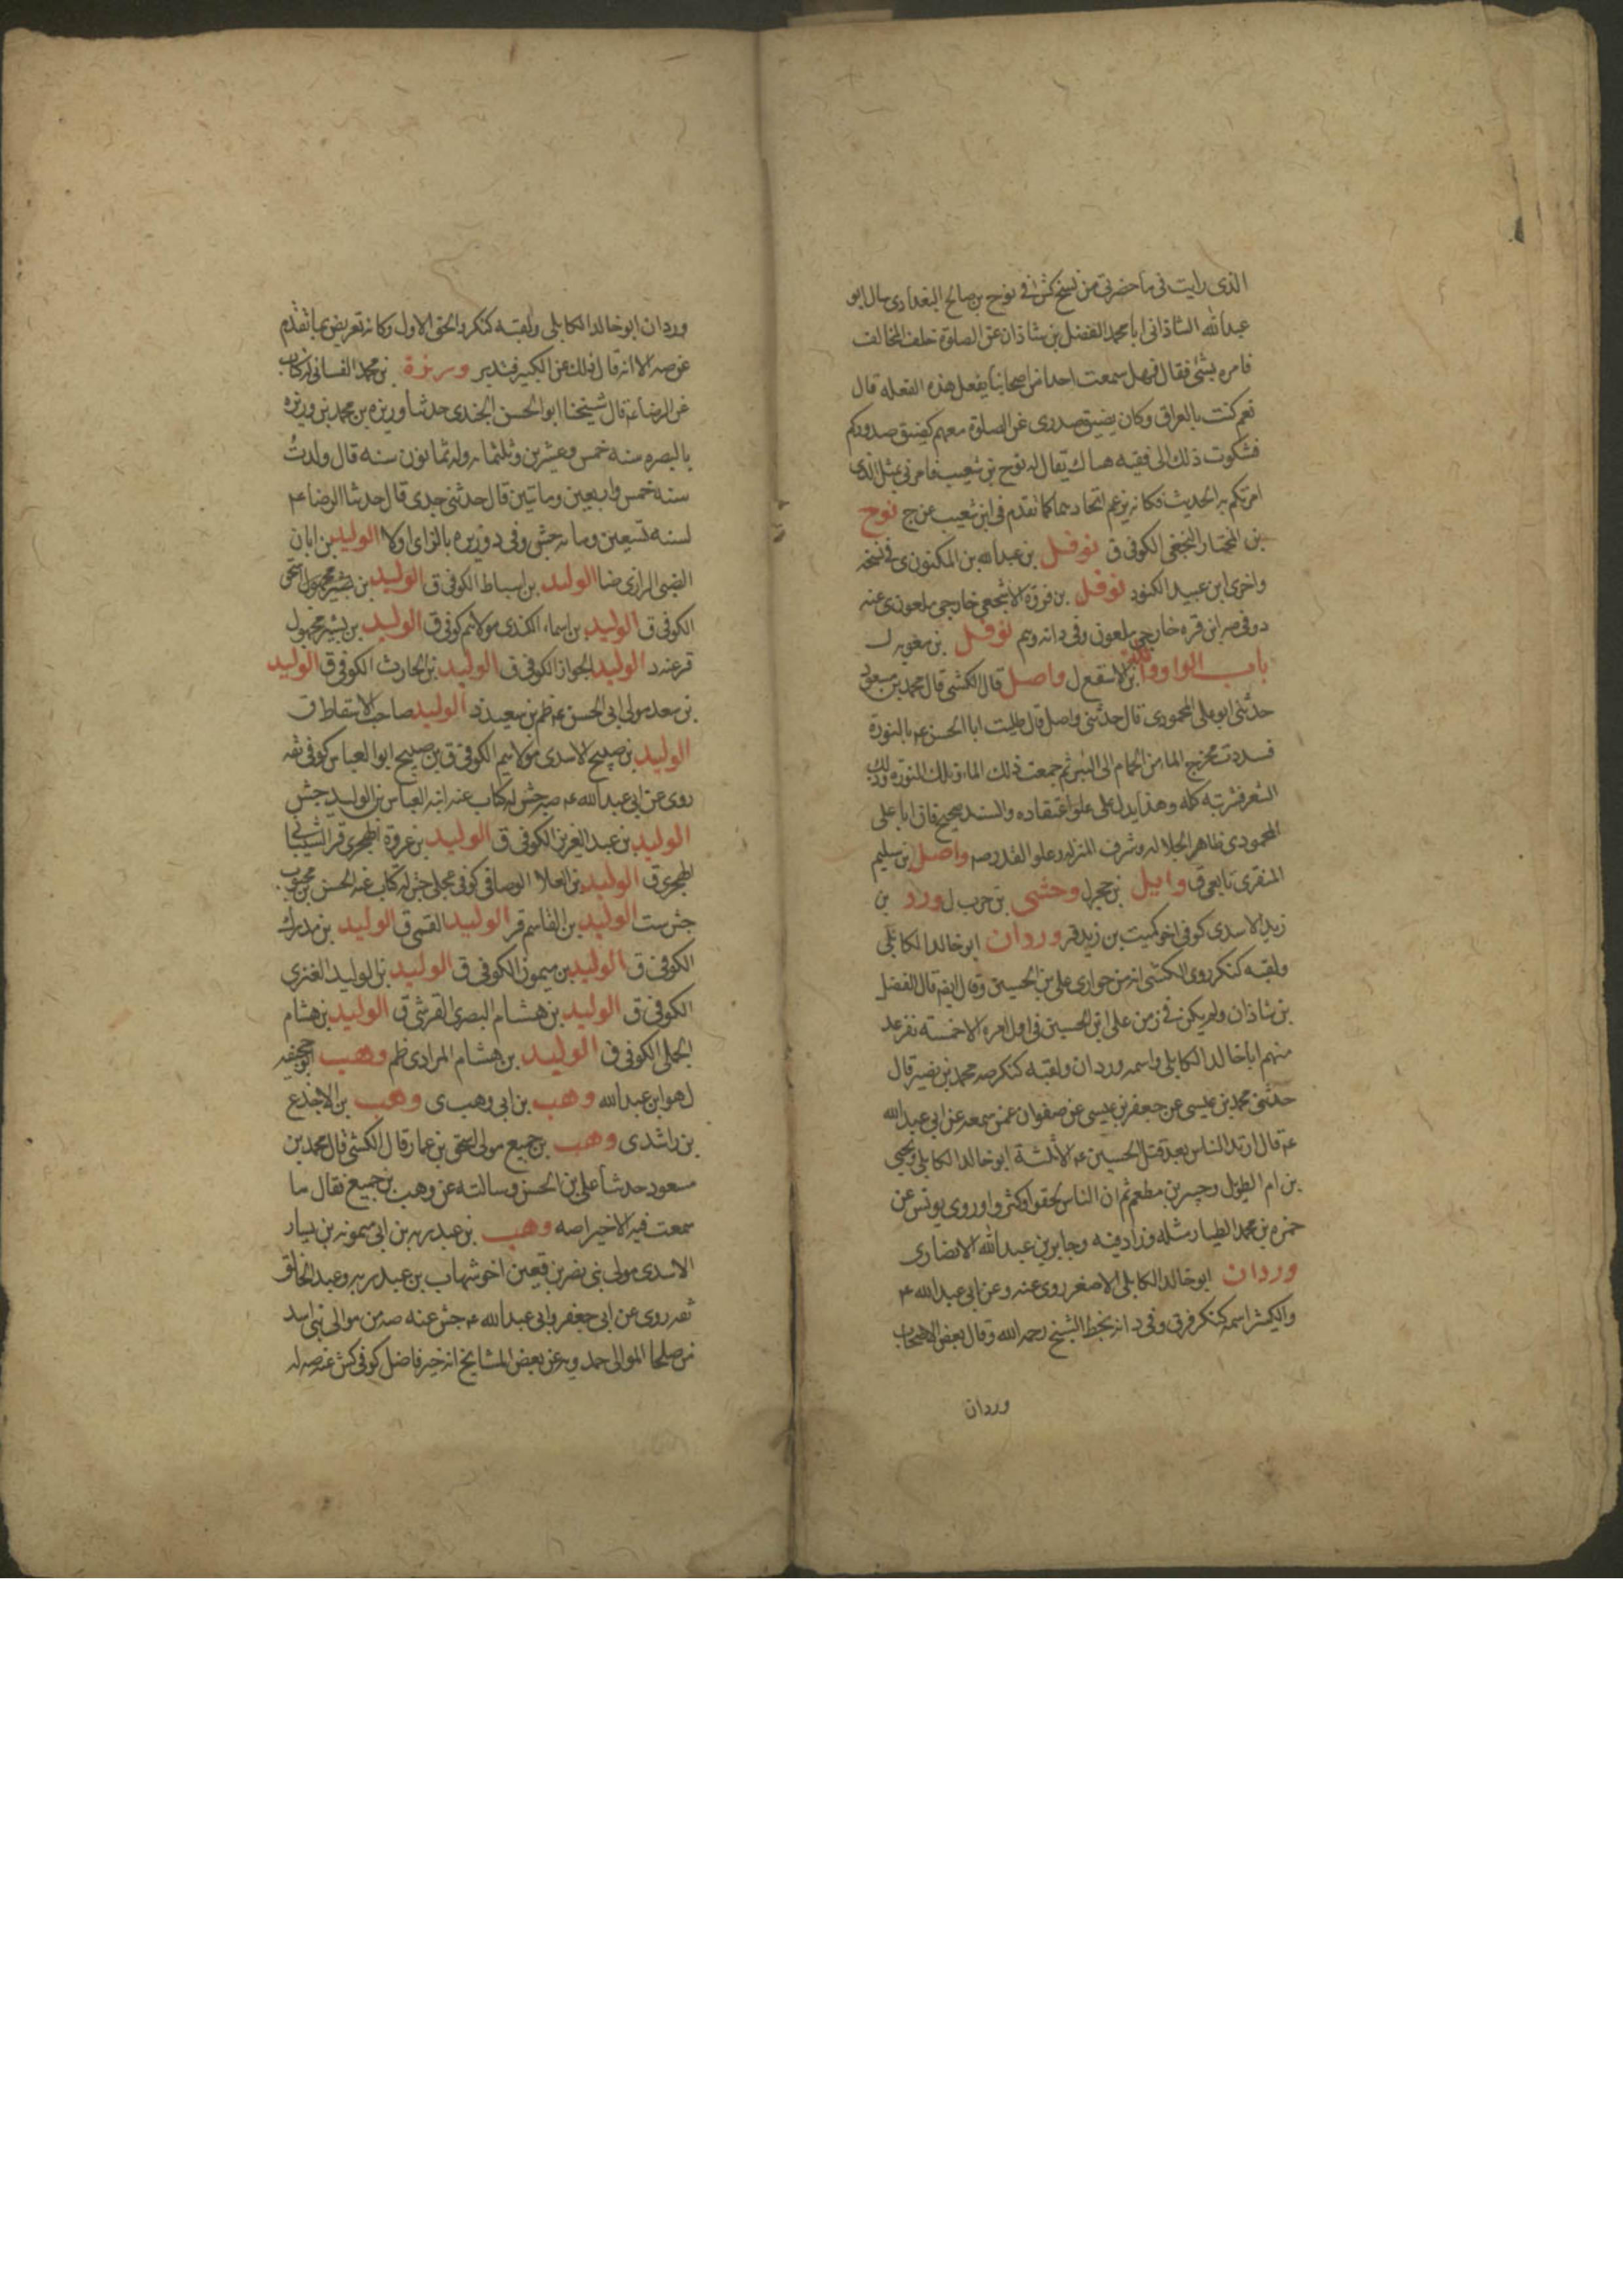 الذى رايت فى ما حضرتى من نسخ كش انه فى نوح بن صالح البغدادى سال ابو
عبدالله الشاذانى ابا محمد الفضل بن شاذان عن الصلوة خلف المخالف
فامره بشئ فقال فهل سمعت احدا من اصحابنا يفعل هذه الفعله قال
نعم كنت بالعراق وكان يضيق صدرى عن الصلوة معهم كضيق صدوركم
فشكوت ذلك الى فقيه هناك يقال له نوح بن شعيب فامرنى بمثل الذى
امرتكم به الحديث وكانه يزعم اتحادهما كما تقدم فى ابن شعيب عن ج نوح
بن المختار النخعى الكوفى ق نوفل بن عبدالله بن المكنون ى فى نسخه
واخرى ابن عبيد الكنود نوفل بن فروة الاشجعى خارجى ملعون ى عنه
د وفى صه ابن قره خارجى ملعون وفى د انه وهم نوفل بن معويه ل
باب الواو واثلة بن الاسقع ل واصل قال الكشى قال محمد بن مسعود
حدثنى ابو على المحمودى قال حدثنى واصل قال طليت ابا الحسن ع بالنورة
فسددت مخرج الماء من الحمام الى البئر ثم جمعت ذلك الماء وتلك النورة وذلك
الشعر فشربته كله وهذا يدل على علو اعتقاده والسند صحيح فان ابا على
المحمودى ظاهر الجلاله وشرف المنزله وعلو القدر صه واصل بن سليم
المنقرى تابعى ق وايل بن حجر ل وحشى بن حرب ل ورد بن
زيد الاسدى كوفى اخو كميت بن زيد قر وردان ابو خالد الكابلى
ولقبه كنكر روى الكشى انه من حوارى على بن الحسين وقال ايضه قال الفضل
بن شاذان ولم يكن فى زمن على ابن الحسين فى اول امره الا خمسة نفر عد
منهم ابا خالد الكابلى واسمه وردان ولقبه كنكر صه محمد بن نصير قال
حدثنى محمد بن عيسى عن جعفر بن عيسى عن صفوان عمن سمعه عن ابى عبدالله
ع قال ارتد الناس بعد قتل الحسين ع الا ثلثة ابو خالد الكابلى ويحيى
بن ام الطويل وجبير بن مطعم ثم ان الناس لحقوا وكثروا وروى يونس عن
حمزه بن محمد الطيار مثله وزاد فيه وجابر بن عبدالله الانصارى
وردان ابو خالد الكابلى الاصغر روى عنه وعن ابى عبدالله ع
والكبير اسمه كنكر قر ق وفى د انه بخط الشيخ رحمه الله وقال بعض الاصحاب
وردان
وردان ابو خالد الكابلى ولقبه كنكر والحق الاول وكانه تعريض بما تقدم
عن صه الا انه قال ذلك عن الكبير فتدبر وريزة بن محمد الغسانى له كتاب
عن الرضا ع قال شيخنا ابو الحسن الجندى حدثنا وريزه بن محمد بن وريزه
بالبصره سنه خمس وعشرين وثلثمائه وله ثمانون سنه قال ولدتُ
سنه خمس واربعين وماتين قال حدثنى جدى قال حدثنا الرضا ع
لسنه تسعين ومائه جش وفى د وزيره بالزاى اولا الوليد بن ابان
الضبى الرازى ضا الوليد بن اسباط الكوفى ق الوليد بن بشير مجهول ق
الكوفى ق الوليد بن اسماء الكندى مولاهم كوفى ق الوليد بن بشير مجهول
قر عنه د الوليد الجواز الكوفى ق الوليد بن الحارث الكوفى ق الوليد
بن سعد مولى ابى الحسن ع ظم بن سعيد د الوليد صاحب الاسقاط ق
الوليد بن صبيح الاسدى مولاهم الكوفى ق بن صبيح ابو العباس كوفى ثقه
روى عن ابى عبدالله ع صه جش له كتاب عنه ابنه العباس بن الوليد جش
الوليد بن عبد العزيز الكوفى ق الوليد بن عروة الهجرى قر الشيبانى
الهجرى ق الوليد بن العلا الوصافى كوفى عجلى جش له كتاب عنه الحسن بن محبوب
جش ست الوليد بن القاسم قر الوليد القمى ق الوليد بن مدرك
الكوفى ق الوليد بن ميمون الكوفى ق الوليد بن الوليد الغنزى
الكوفى ق الوليد بن هشام البصرى القرشى ق الوليد بن هشام
الجملى الكوفى ق الوليد بن هشام المرادى ظم وهب ابو جحيفه
ل هو ابن عبدالله وهب بن ابى وهب ى وهب بن الاجذع
بن راشد ى وهب بن جميع مولى اسحق بن عمار قال الكشى قال محمد بن
مسعود حدثنا على بن الحسن وسالته عن وهب بن جميع فقال ما
سمعت فيه الا خيرا صه وهب بن عبد ربه بن ابى ميمونه بن يسار
الاسدى مولى بنى نصر بن قعين اخو شهاب بن عبد ربه وعبد الخالق
ثقه روى عن ابى جعفر وابى عبدالله ع جش عنه صه من موالى بنى اسد
من صلحا الموالى حمدويه عن بعض المشايخ انه خير فاضل كوفى كش عنه صه له